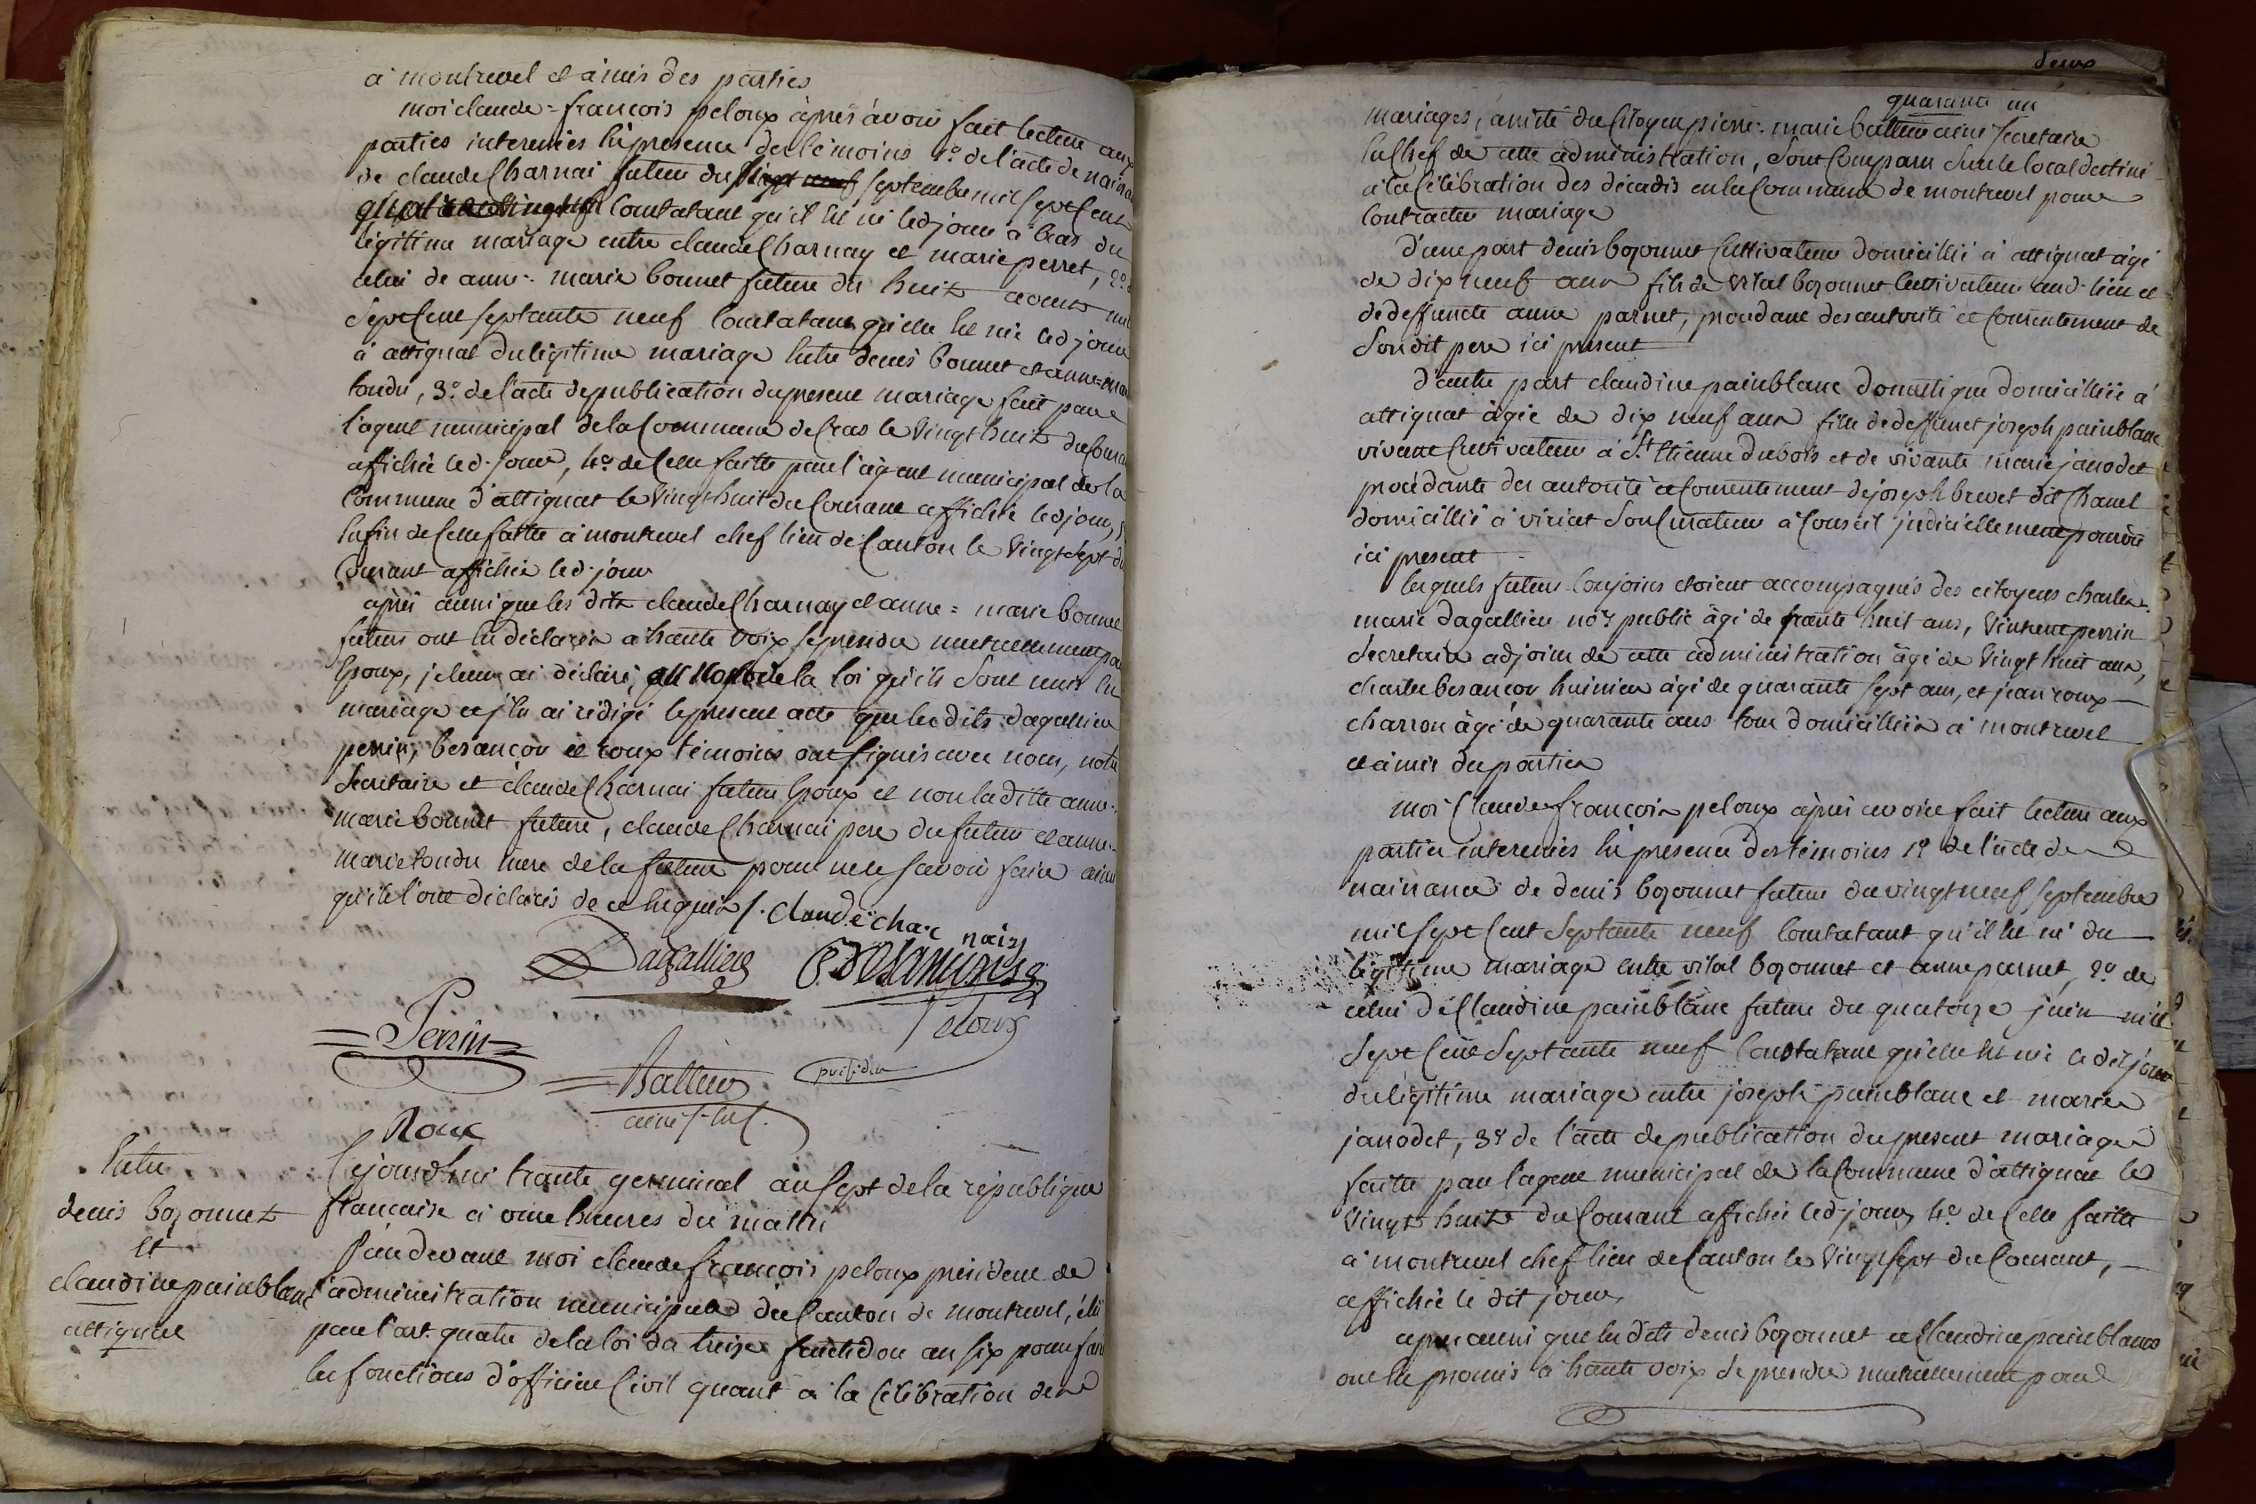 à montrevel et amis des parties
moi claude=françois peloux après avoir fait lecture aux
parties interessées en presence des témoins 1º de l'acte de naissan
de claude Charnai futeur du septembre mil sept cent
constatant qu'il est né led jour à Cras du
légitime mariage entre claude Charnay et marie perret, 2º
celui de anne-marie bonnet future du huit aoust mil
sept cent septante neuf constatant qu'elle est née led jour
à attignat du légitime mariage entre denis bonnet et anne=marie
tondu, 3º de l'acte de publication du present mariage fait par
l'agent municipal de la Commune de Cras le vingt huit du Couran
affichée led. jour, 4º de celle faitte par l'agent municipal de la
Commune d'attignat le vingt huit du Courant affichée led jour, 5
enfin de celle faitte à montrevel chef lieu de Canton le vingt sept du
Courant affichée led. jour
après aussi que les dits claude Charnay et anne=marie bonnet
futurs ont eu déclarés à haute voix se prendre mutuellement pour
Epoux, je leur ai déclaré, au nom de la loi qu'ils sont unis en
mariage et j'en ai rédigé le present acte que les dits dagallier
perrin, besançon et roux témoins ont signés avec nous, notre
Secretaire et claude Charnai futeur Epoux et non laditte anne-
marie bonnet future, claude Charnai pere du futeur et anne-
marie tondu mere de la future pour ne le savoir faire ainsi
qu'ils l'ont déclarés de ce enquis /. Claude char
nais
Dagallier
Perrin
Peloux
président
Ballein
ainé
Roux
Entre
denis bozonnet
et
claudine painblanc
attignat
Cejourd'hui trente germinal an sept de la république
française à onze heures du matin
Pardevant moi claude françois peloux président de
l'administration municipale du Canton de montrevel, élu
par l'art. quatre de la loi du treize fructidor an six pour faire
les fonctions d'officier Civil quant à la Célébration des
deux
quarante un
mariages, assisté du Citoyen pierre-marie ballein ainé secretaire
en Chef de cette administration, sont Comparu sur le local destiné
à la Célébration des décadis en la Commune de montrevel pour
Contracter mariage
d'une part denis bozonnet Cultivateur domicillié à attignat âgé
de dix neuf ans fils de vital bozonnet Cultivateur aud. lieu et
de deffuncte anne parnet, procédant des autorité et Consentement de
Sondit pere ici present
d'autre part claudine painblanc domestique domicilliée à
attignat âgée de dix neuf ans fille de deffunct joseph painblanc
vivant Cultivateur à St Etienne dubois et de vivante marie janodet
procédante des autorité et Consentement de joseph brevet dit Chanel
domicillié à viriat son Curateur à Conseil judiciellement pourvu
ici present
Lesquels futeurs conjoints etoient accompagnés des citoyens charles-
marie dagallier nore public âgé de trante huit ans, vincent perrin
secretaire adjoint de cette administration âgé de vingt huit ans,
charles besançon huissier âgé de quarante sept ans, et jean roux
charron âgé de quarante ans tous domicilliés à montrevel
et amis des parties
moi Claude françois peloux après avoir fait lecture aux
parties interessées en presence des témoins 1º de l'acte de
naissance de denis bozonnet futeur du vingt neuf septembre
mil sept cent septante neuf constatant qu'il est né du
légitime mariage entre vital bozonnet et anne parnet, 2º de
celui de Claudine painblanc future du quatorze juin mil
sept Cent septante neuf Constatant qu'elle est née le dit jour
du légitime mariage entre joseph painblanc et marie
janodet, 3º de l'acte de publication du present mariage
faitte par l'agent municipal de la Commune d'attignat le
vingt huit du Courant affichée led. jour, 4º de Celle faitte
à montrevel chef lieu de Canton le vingt sept du Courant,
affichée le dit jour,
après aussi que les dits denis bozonnet et Claudine painblanc
ont eu promis à haute voix de prendre mutuellement pour